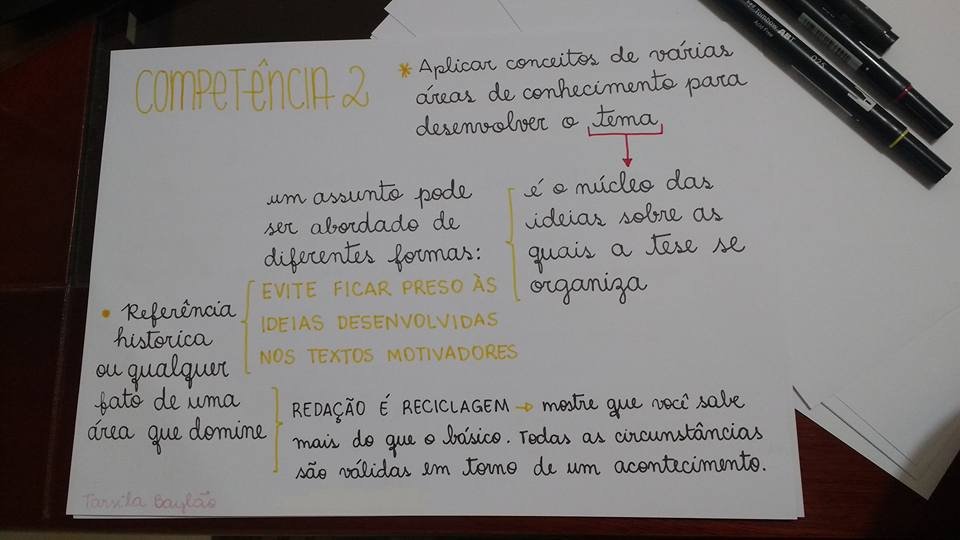 COMPETÊNCIA 2
* Aplicar conceitos de várias
áreas de conhecimento para
desenvolver o tema
é o núcleo das
ideias sobre as
quais a tese se
organiza
um assunto pode
ser abordado de
diferentes formas:
EVITE FICAR PRESO ÀS
IDEIAS DESENVOLVIDAS
NOS TEXTOS MOTIVADORES
• Referência
historica
ou qualquer
fato de uma
área que domine
REDAÇÃO É RECICLAGEM → mostre que você sabe
mais do que o básico. Todas as circunstâncias
são válidas em torno de um acontecimento.
Tarsila Baylão
Tombow ABT